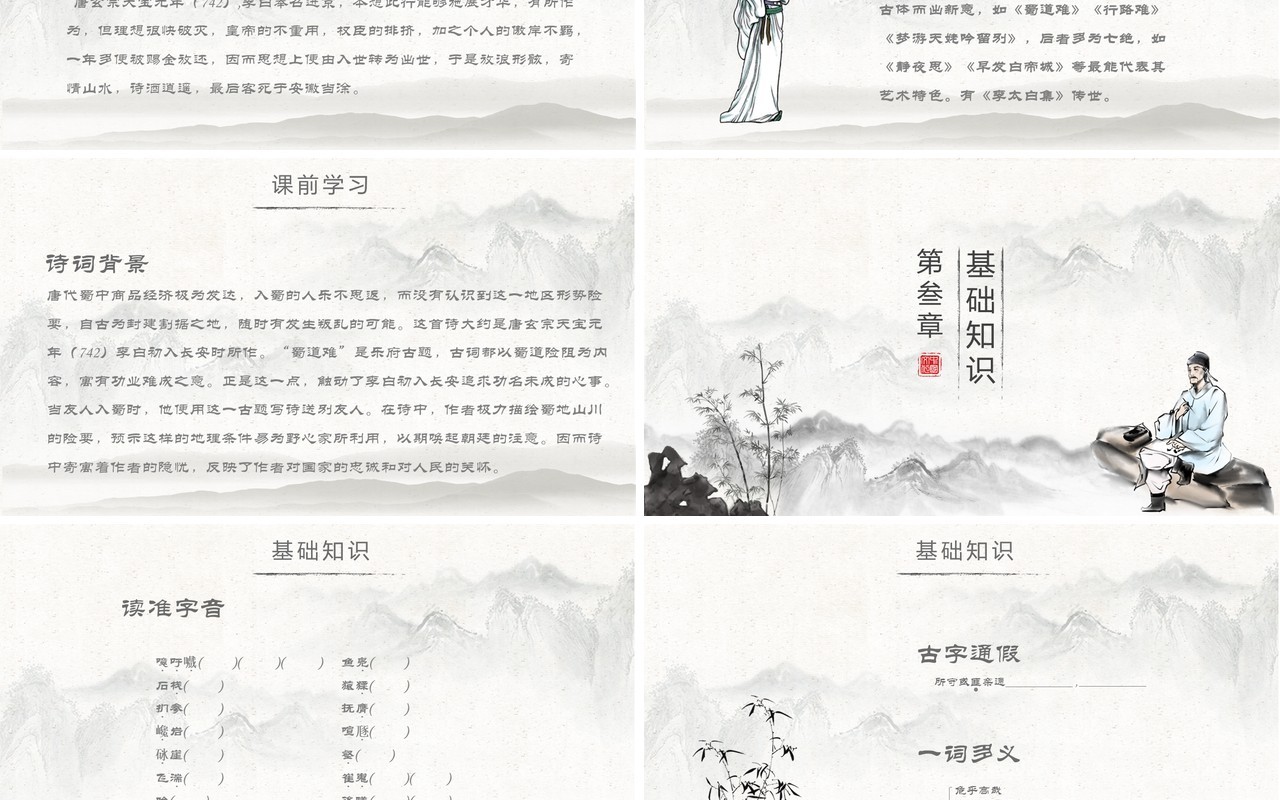 唐玄宗天宝元年（742），李白奉召进京，本想此行能够施展才华，有所作
为，但理想很快破灭，皇帝的不重用，权臣的排挤，加之个人的傲岸不羁，
一年多便被赐金放还，因而思想上便由入世转为出世，于是放浪形骸，寄
情山水，诗酒逍遥，最后客死于安徽当涂。
古体而出新意，如《蜀道难》《行路难》
《梦游天姥吟留别》，后者多为七绝，如
《静夜思》《早发白帝城》等最能代表其
艺术特色。有《李太白集》传世。
课前学习
诗词背景
唐代蜀中商品经济极为发达，入蜀的人乐不思返，而没有认识到这一地区形势险
要，自古为封建割据之地，随时有发生叛乱的可能。这首诗大约是唐玄宗天宝元
年（742）李白初入长安时所作。“蜀道难”是乐府古题，古词都以蜀道险阻为内
容，寓有功业难成之意。正是这一点，触动了李白初入长安追求功名未成的心事。
当友人入蜀时，他便用这一古题写诗送别友人。在诗中，作者极力描绘蜀地山川
的险要，预示这样的地理条件易为野心家所利用，以期唤起朝廷的注意。因而诗
中寄寓着作者的隐忧，反映了作者对国家的忠诚和对人民的关怀。
第叁章
基础知识
基础知识
读准字音
噫吁嚱(　　)(　　)(　　)
鱼凫(　　)
石栈(　　)
猿猱(　　)
扪参(　　)
抚膺(　　)
巉岩(　　)
喧豗(　　)
砯崖(　　)
壑(　　)
飞湍(　　)
崔嵬(　　)(　　)
基础知识
古字通假
所守或匪亲通__________，__________
一词多义
危乎高哉